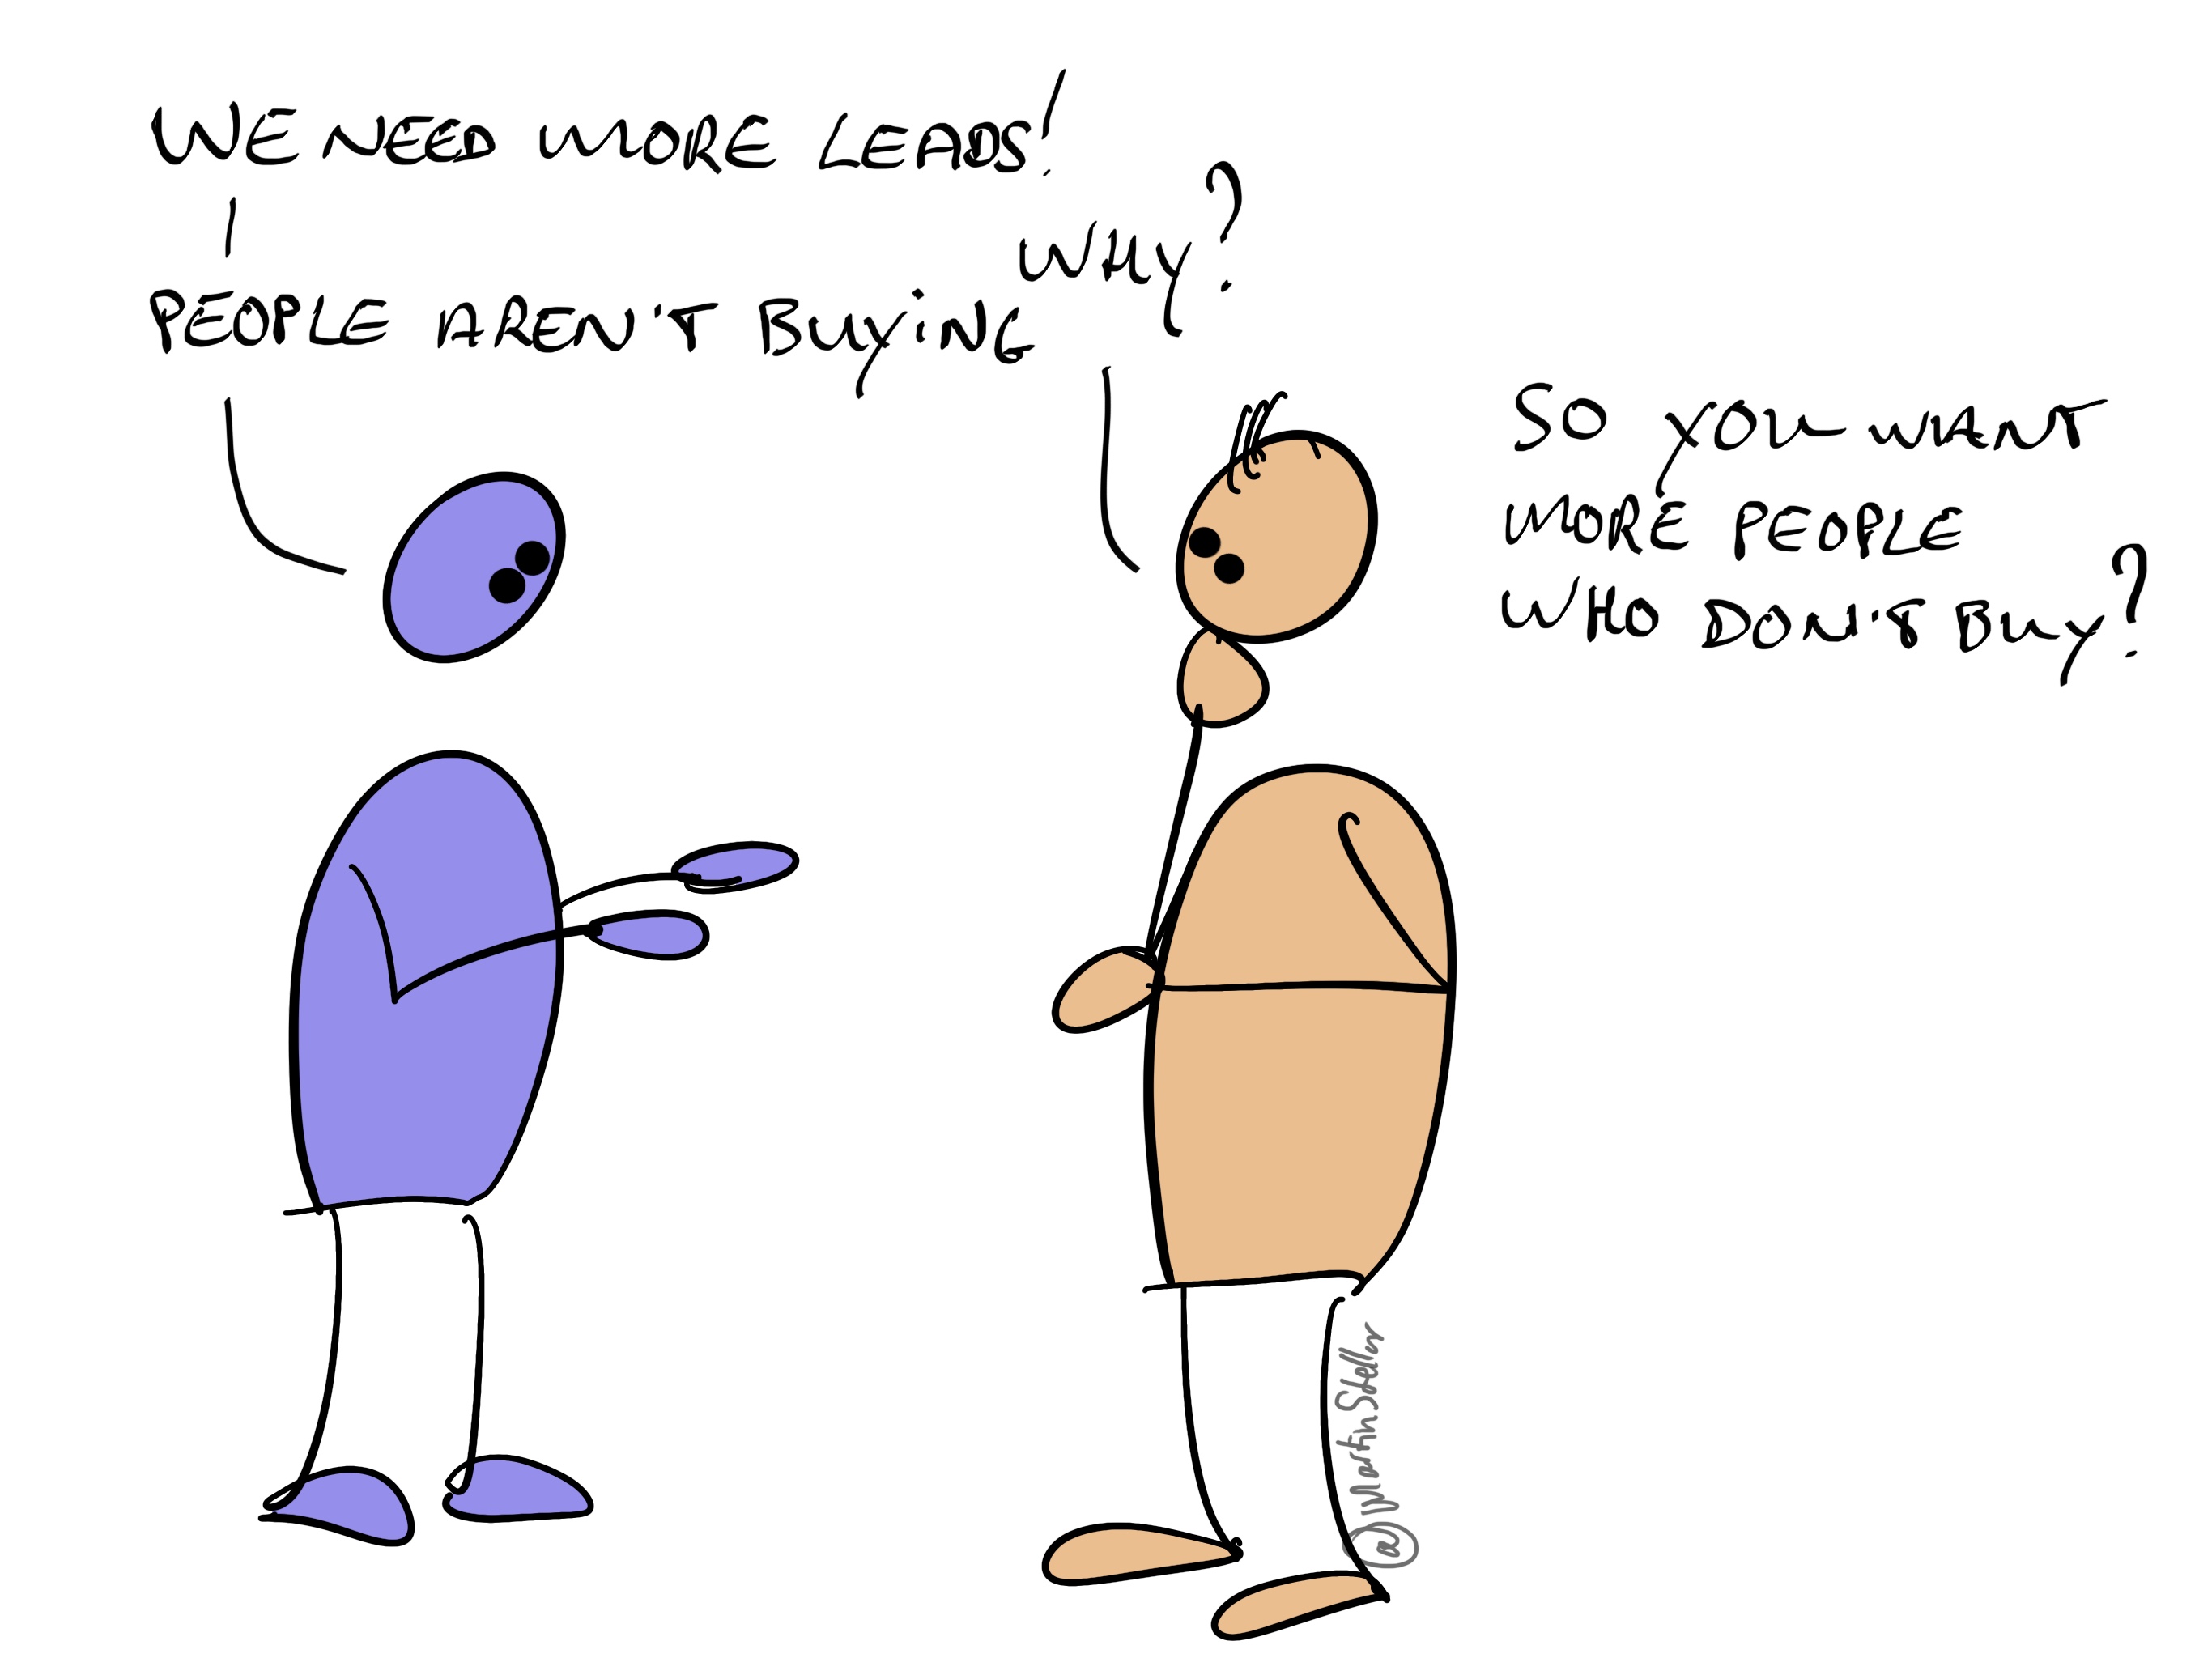 WE NEED MORE LEADS!
WHY?
PEOPLE AREN'T BUYING
SO YOU WANT
MORE PEOPLE
WHO DON'T BUY?
@MartinStellar